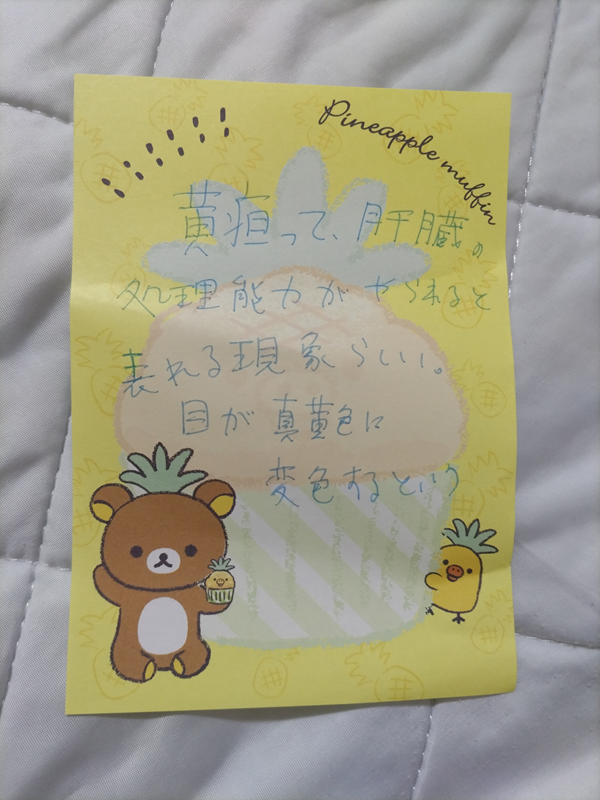 Pineapple muffin
黄疸って、肝臓の
処理能力がやられると
表れる現象らしい。
目が真黄色に
変色するという